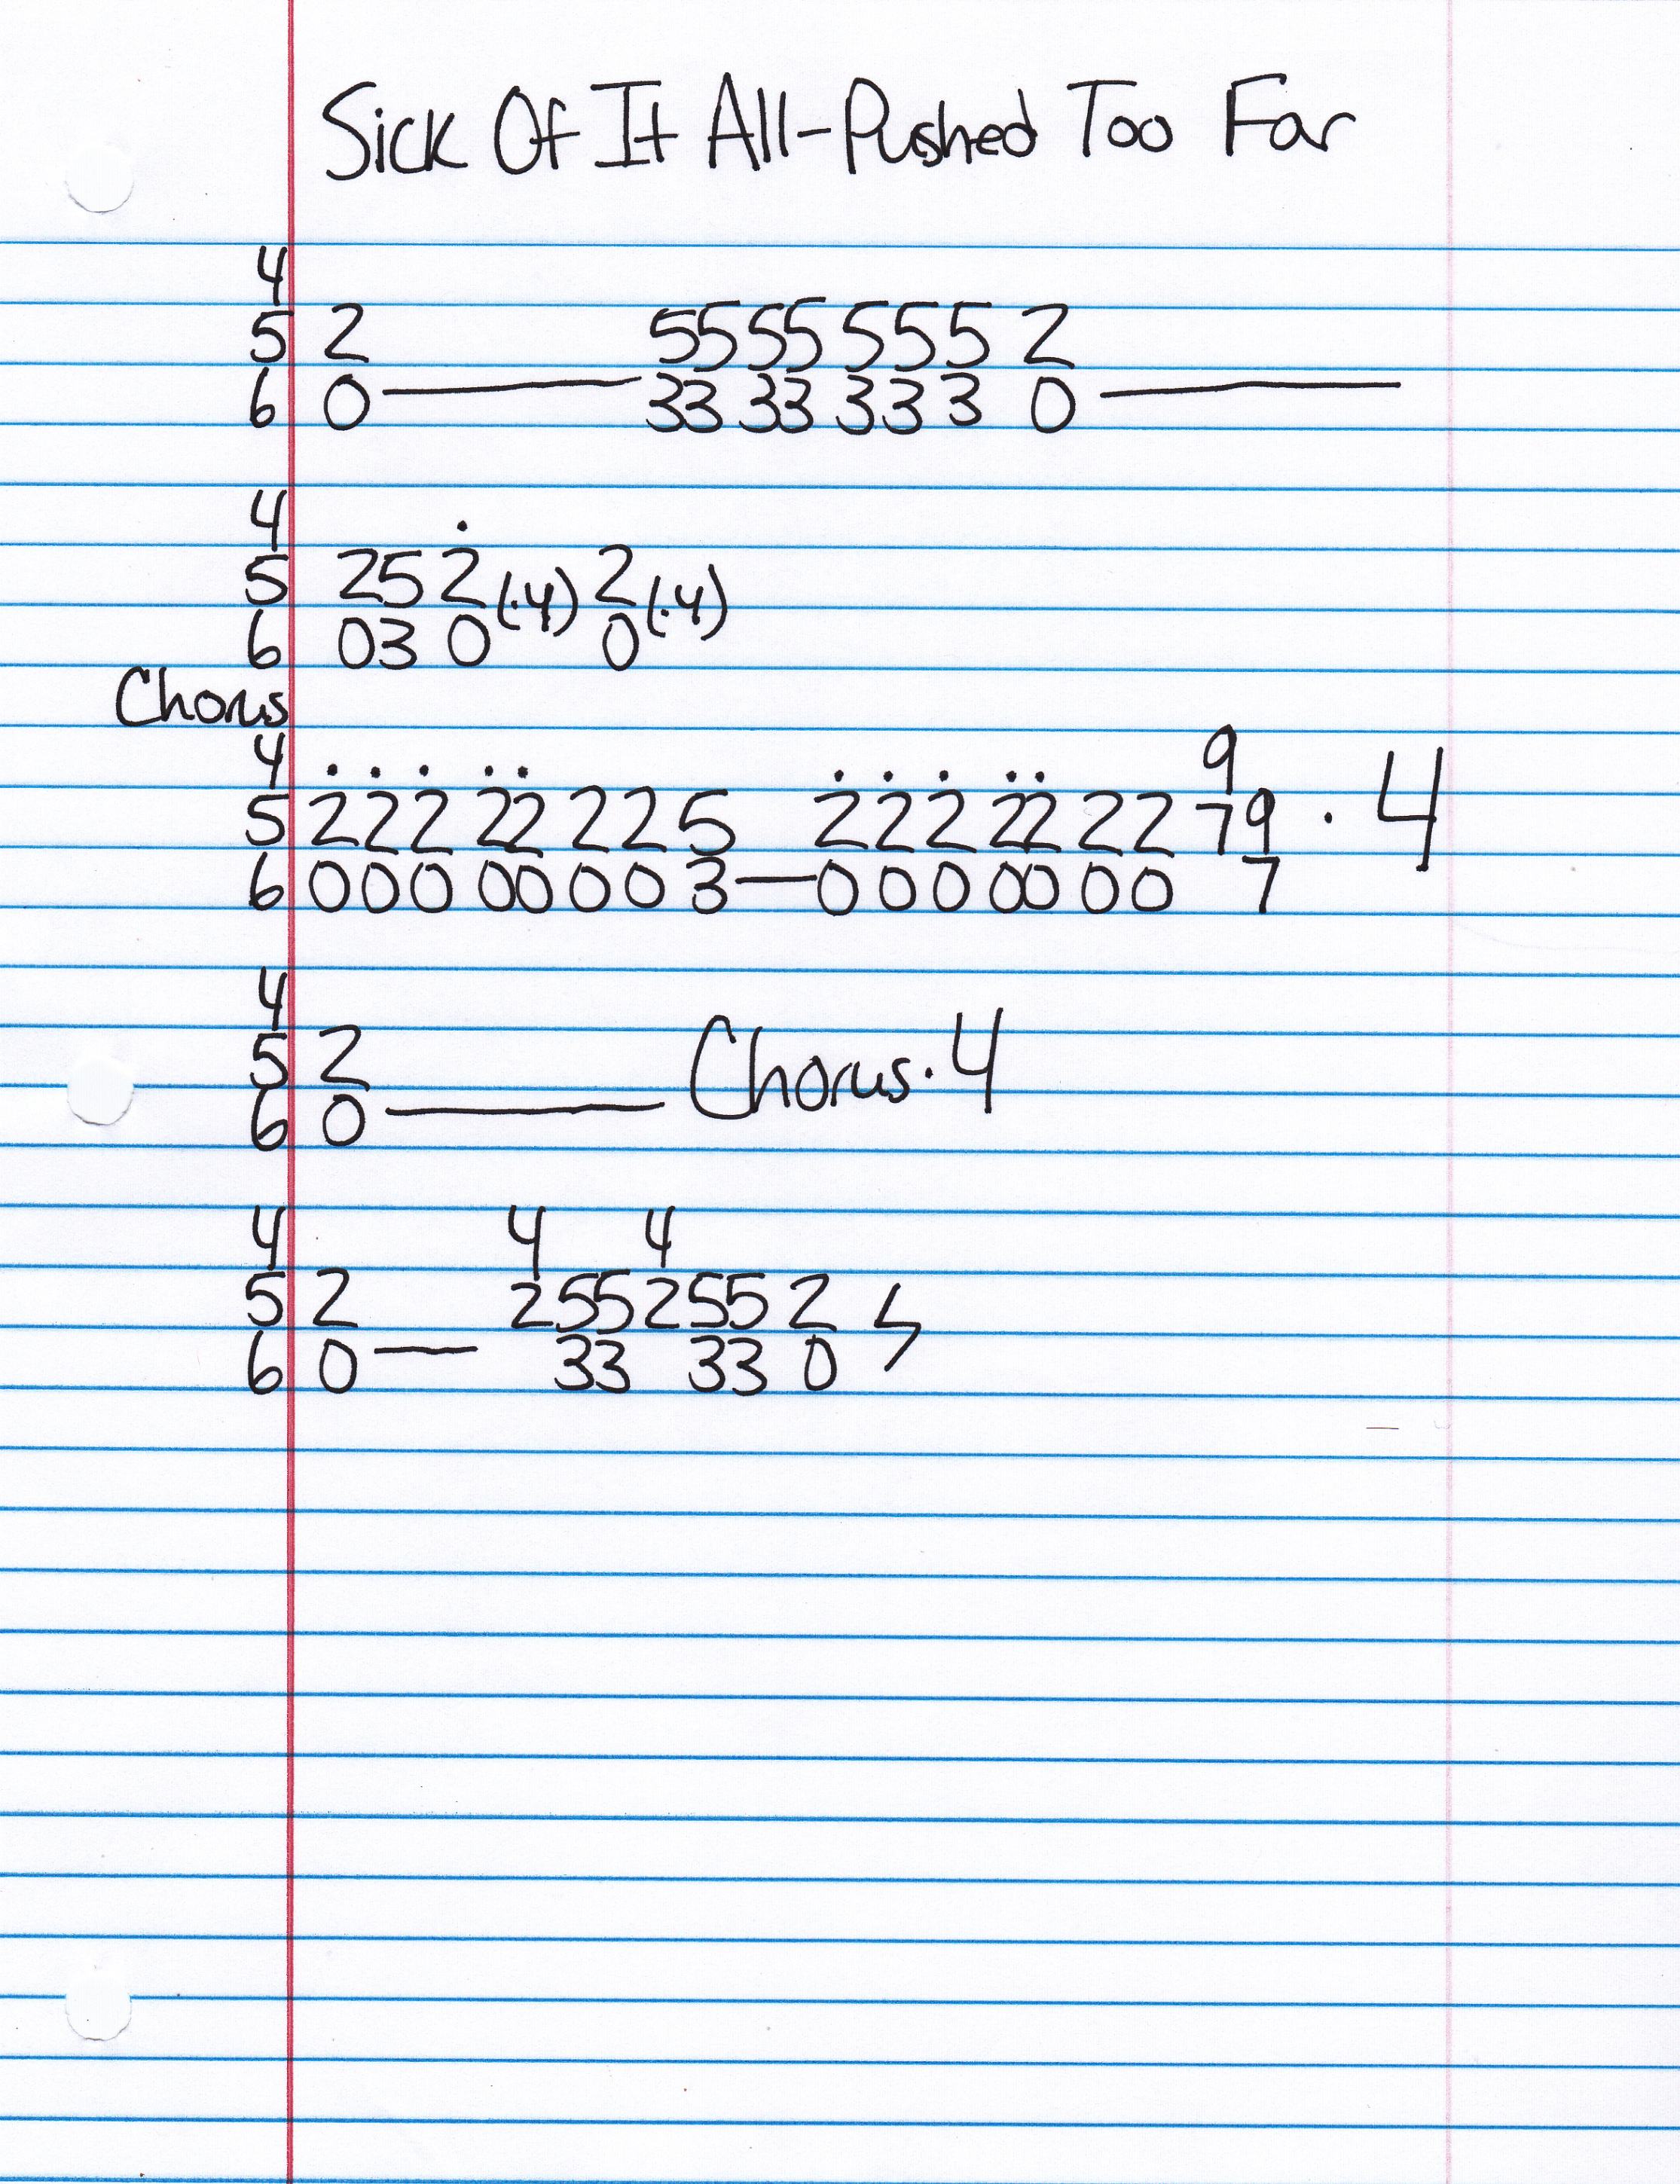 Sick Of It All-Pushed Too Far
4
5 2 55 55 555 2
6 0 — 33 33 333 0 —
4 .
5 25 2 (·4) 2 (·4)
6 03 0 0
Chorus
4 . . . .. . . . .. 9
5 222 22 22 5 222 22 22 79 · 4
6 000 00 00 3 — 000 00 00 7
4
5 2 Chorus·4
6 0 —
4 4 4
5 2 255255 2 ϟ
6 0 — 33 33 0